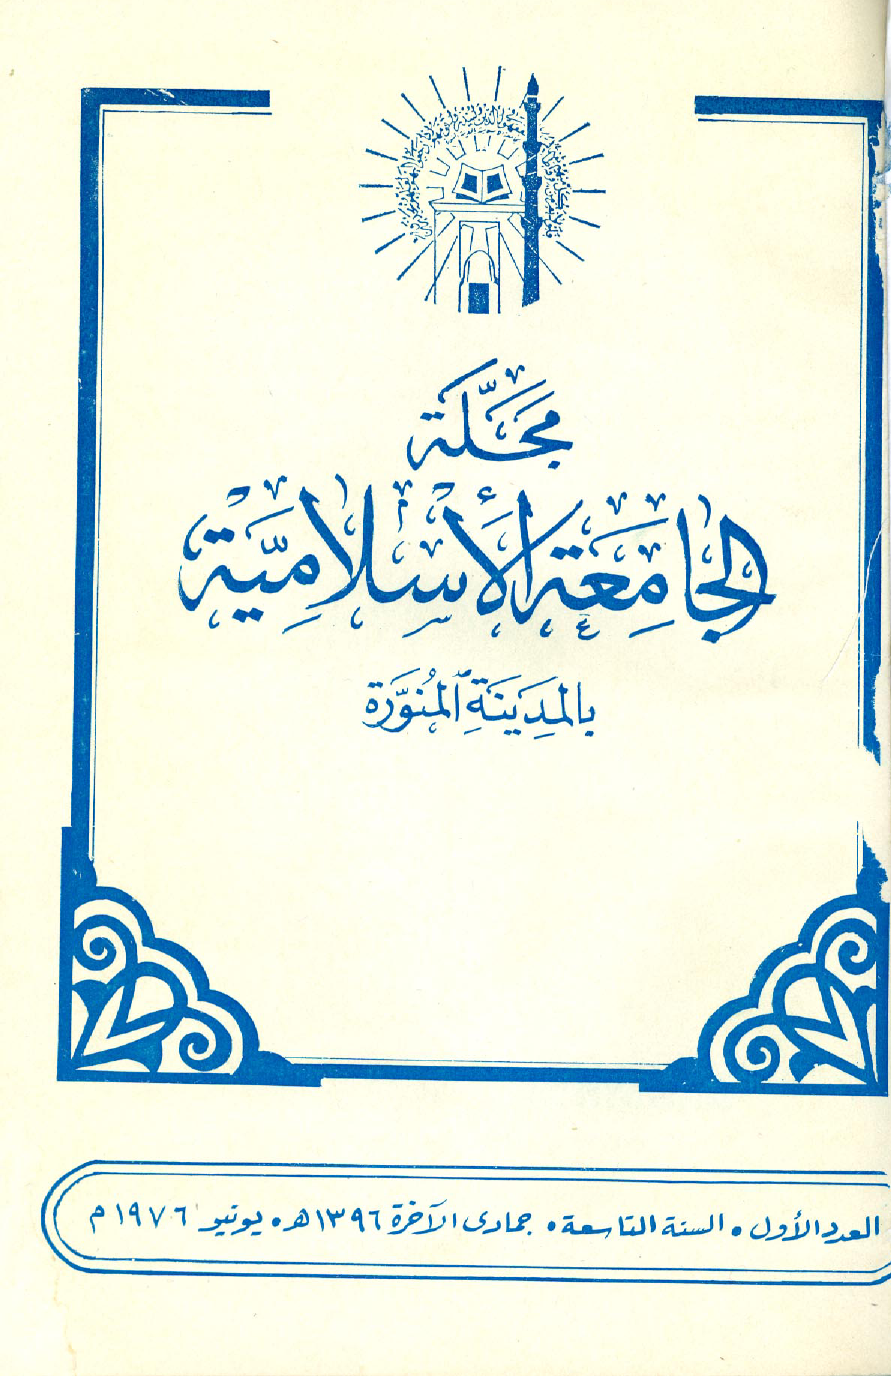 مَجَلَّة
الجَامِعَة الأِسْلَامِيَّة
بالمَدِينَةِ المُنَوَّرَة
العدد الأول • السنة التاسعة • جمادى الآخرة ١٣٩٦هـ • يونيو ١٩٧٦م